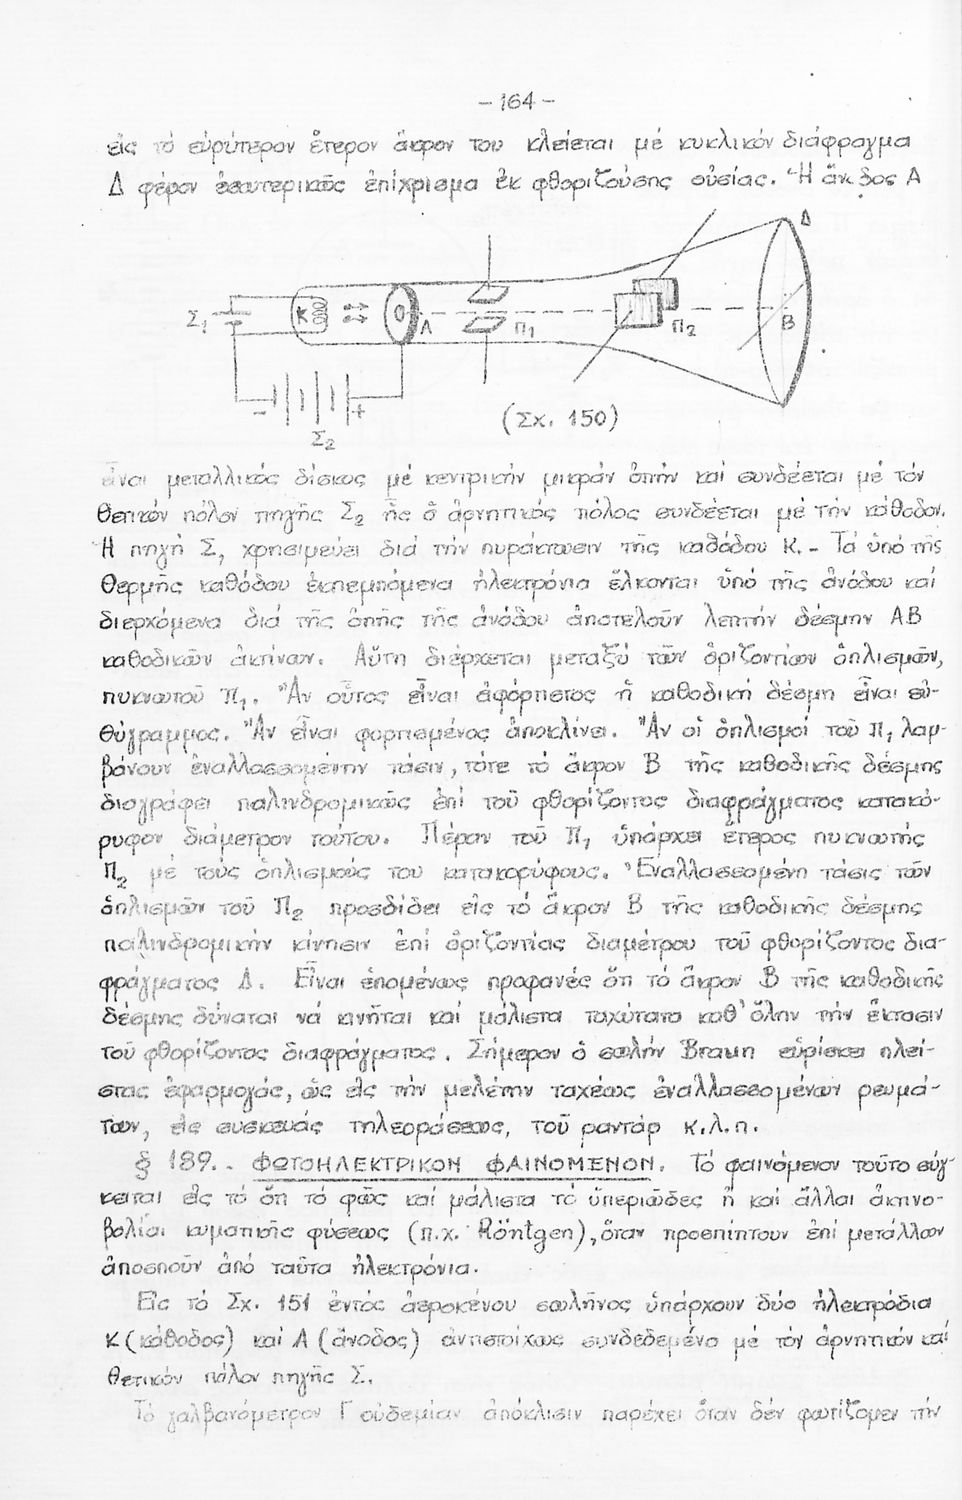 - 164 -
εἰς τό εὐρύτερον ἕτερον ἄκρον του κλείεται μέ κυκλικόν διάφραγμα
Δ φέρον ἐσωτερικῶς ἐπίχρισμα ἐκ φθοριζούσης οὐσίας. Ἡ ἄνοδος Α
Δ
Σ1 Κ Λ Π1 Π2 Β
- +
Σ2
(Σχ. 150)
εἶναι μεταλλικός δίσκος μέ κεντρικήν μικράν ὀπήν καί συνδέεται μέ τόν
θετικόν πόλον πηγῆς Σ2 ἧς ὁ ἀρνητικός πόλος συνδέεται μέ τήν κάθοδον.
Ἡ πηγή Σ, χρησιμεύει διά τήν πυράκτωσιν τῆς καθόδου Κ.- Τά ὑπό τῆς
θερμῆς καθόδου ἐκπεμπόμενα ἠλεκτρόνια ἕλκονται ὑπό τῆς ἀνόδου καί
διερχόμενα διά τῆς ὀπῆς τῆς ἀνόδου ἀποτελοῦν λεπτήν δέσμην ΑΒ
καθοδικῶν ἀκτίνων. Αὕτη διέρχεται μεταξύ τῶν ὁριζοντίων ὁπλισμῶν,
πυκνωτοῦ Π1. Ἄν οὗτος εἶναι ἀφόρτιστος ἡ καθοδική δέσμη εἶναι εὐ-
θύγραμμος. Ἄν εἶναι φορτισμένος ἀποκλίνει. Ἄν οἱ ὁπλισμοί τοῦ Π1 λαμ-
βάνουν ἐναλλασσομένην τάσιν, τότε τό ἄκρον Β τῆς καθοδικῆς δέσμης
διαγράφει παλινδρομικῶς ἐπί τοῦ φθορίζοντος διαφράγματος κατακό-
ρυφον διάμετρον τούτου. Πέραν τοῦ Π1 ὑπάρχει ἕτερος πυκνωτής
Π2 μέ τούς ὁπλισμούς του κατακορύφους. Ἐναλλασσομένη τάσις τῶν
ὁπλισμῶν τοῦ Π2 προσδίδει εἰς τό ἄκρον Β τῆς καθοδικῆς δέσμης
παλινδρομικήν κίνησιν ἐπί ὁριζοντίας διαμέτρου τοῦ φθορίζοντος δια-
φράγματος Δ. Εἶναι ἑπομένως προφανές ὅτι τό ἄκρον Β τῆς καθοδικῆς
δέσμης δύναται νά κινῆται καί μάλιστα ταχύτατα καθ' ὅλην τήν ἔκτασιν
τοῦ φθορίζοντος διαφράγματος. Σήμερον ὁ σωλήν Braun εὑρίσκει πλεί-
στας ἐφαρμογάς, ὡς εἰς τήν μελέτην ταχέως ἐναλλασσομένων ρευμά-
των, εἰς συσκευάς τηλεοράσεως, τοῦ ραντάρ κ.λ.π.
§ 189.- ΦΩΤΟΗΛΕΚΤΡΙΚΟΝ ΦΑΙΝΟΜΕΝΟΝ. Τό φαινόμενον τοῦτο σύγ-
κειται εἰς τό ὅτι τό φῶς καί μάλιστα τό ὑπεριῶδες ἤ καί ἄλλαι ἀκτινο-
βολίαι κυματικῆς φύσεως (π.χ. Röntgen), ὅταν προσπίπτουν ἐπί μετάλλων
ἀποσποῦν ἀπό ταῦτα ἠλεκτρόνια.
Εἰς τό Σχ. 151 ἐντός ἀεροκένου σωλῆνος ὑπάρχουν δύο ἠλεκτρόδια
Κ (κάθοδος) καί Α (ἄνοδος) ἀντιστοίχως συνδεδεμένα μέ τόν ἀρνητικόν καί
θετικόν πόλον πηγῆς Σ.
Τό γαλβανόμετρον Γ οὐδεμίαν ἀπόκλισιν παρέχει ὅταν δέν φωτίζομεν τήν